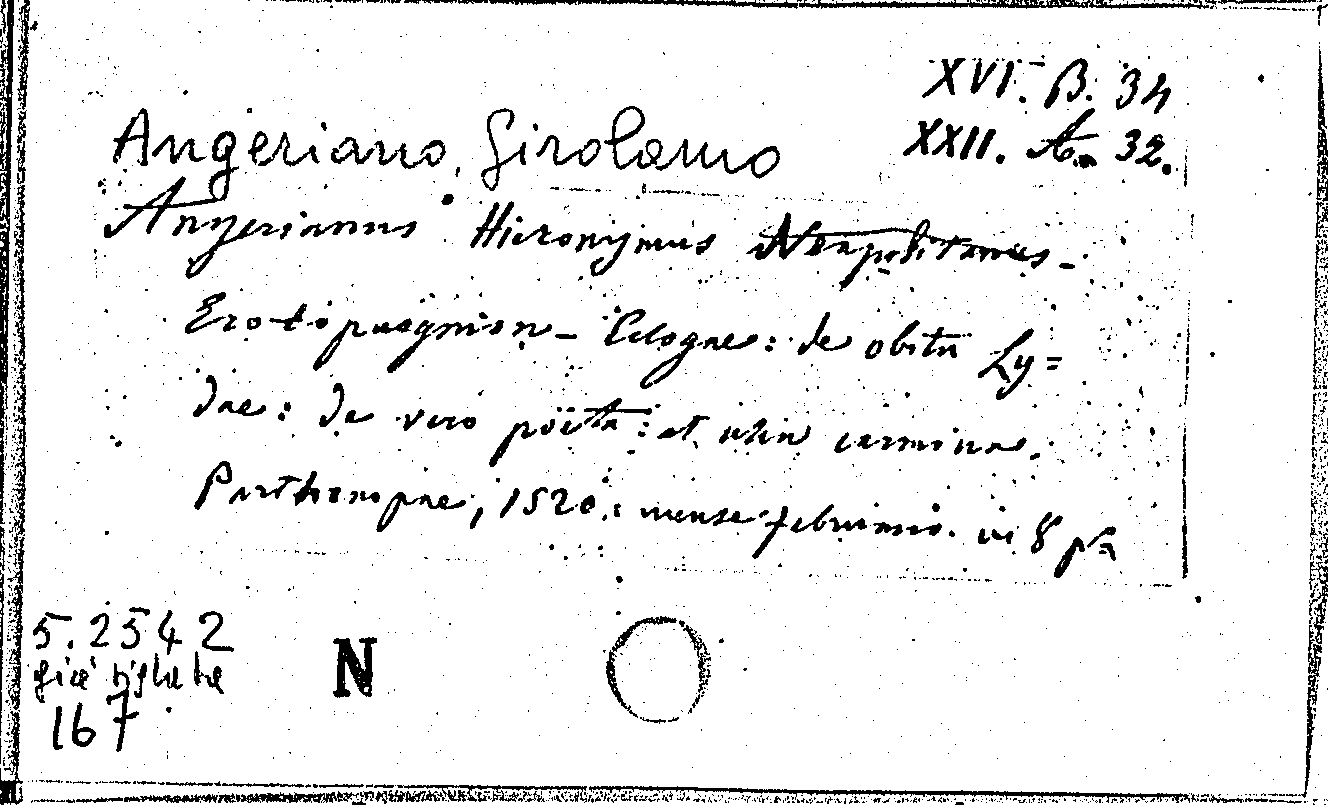 XVI. B. 34
XXII. A. 32.
Angeriano, Girolamo
Angerianus Hieronymus Neapolitanus -
Erotopaegnion - Eclogae: de obitu Ly=
dae: de vero poëta: et alia carmina.
Parthenopae, 1520: mense februario. in 8 pº
5.2542
già
167
N